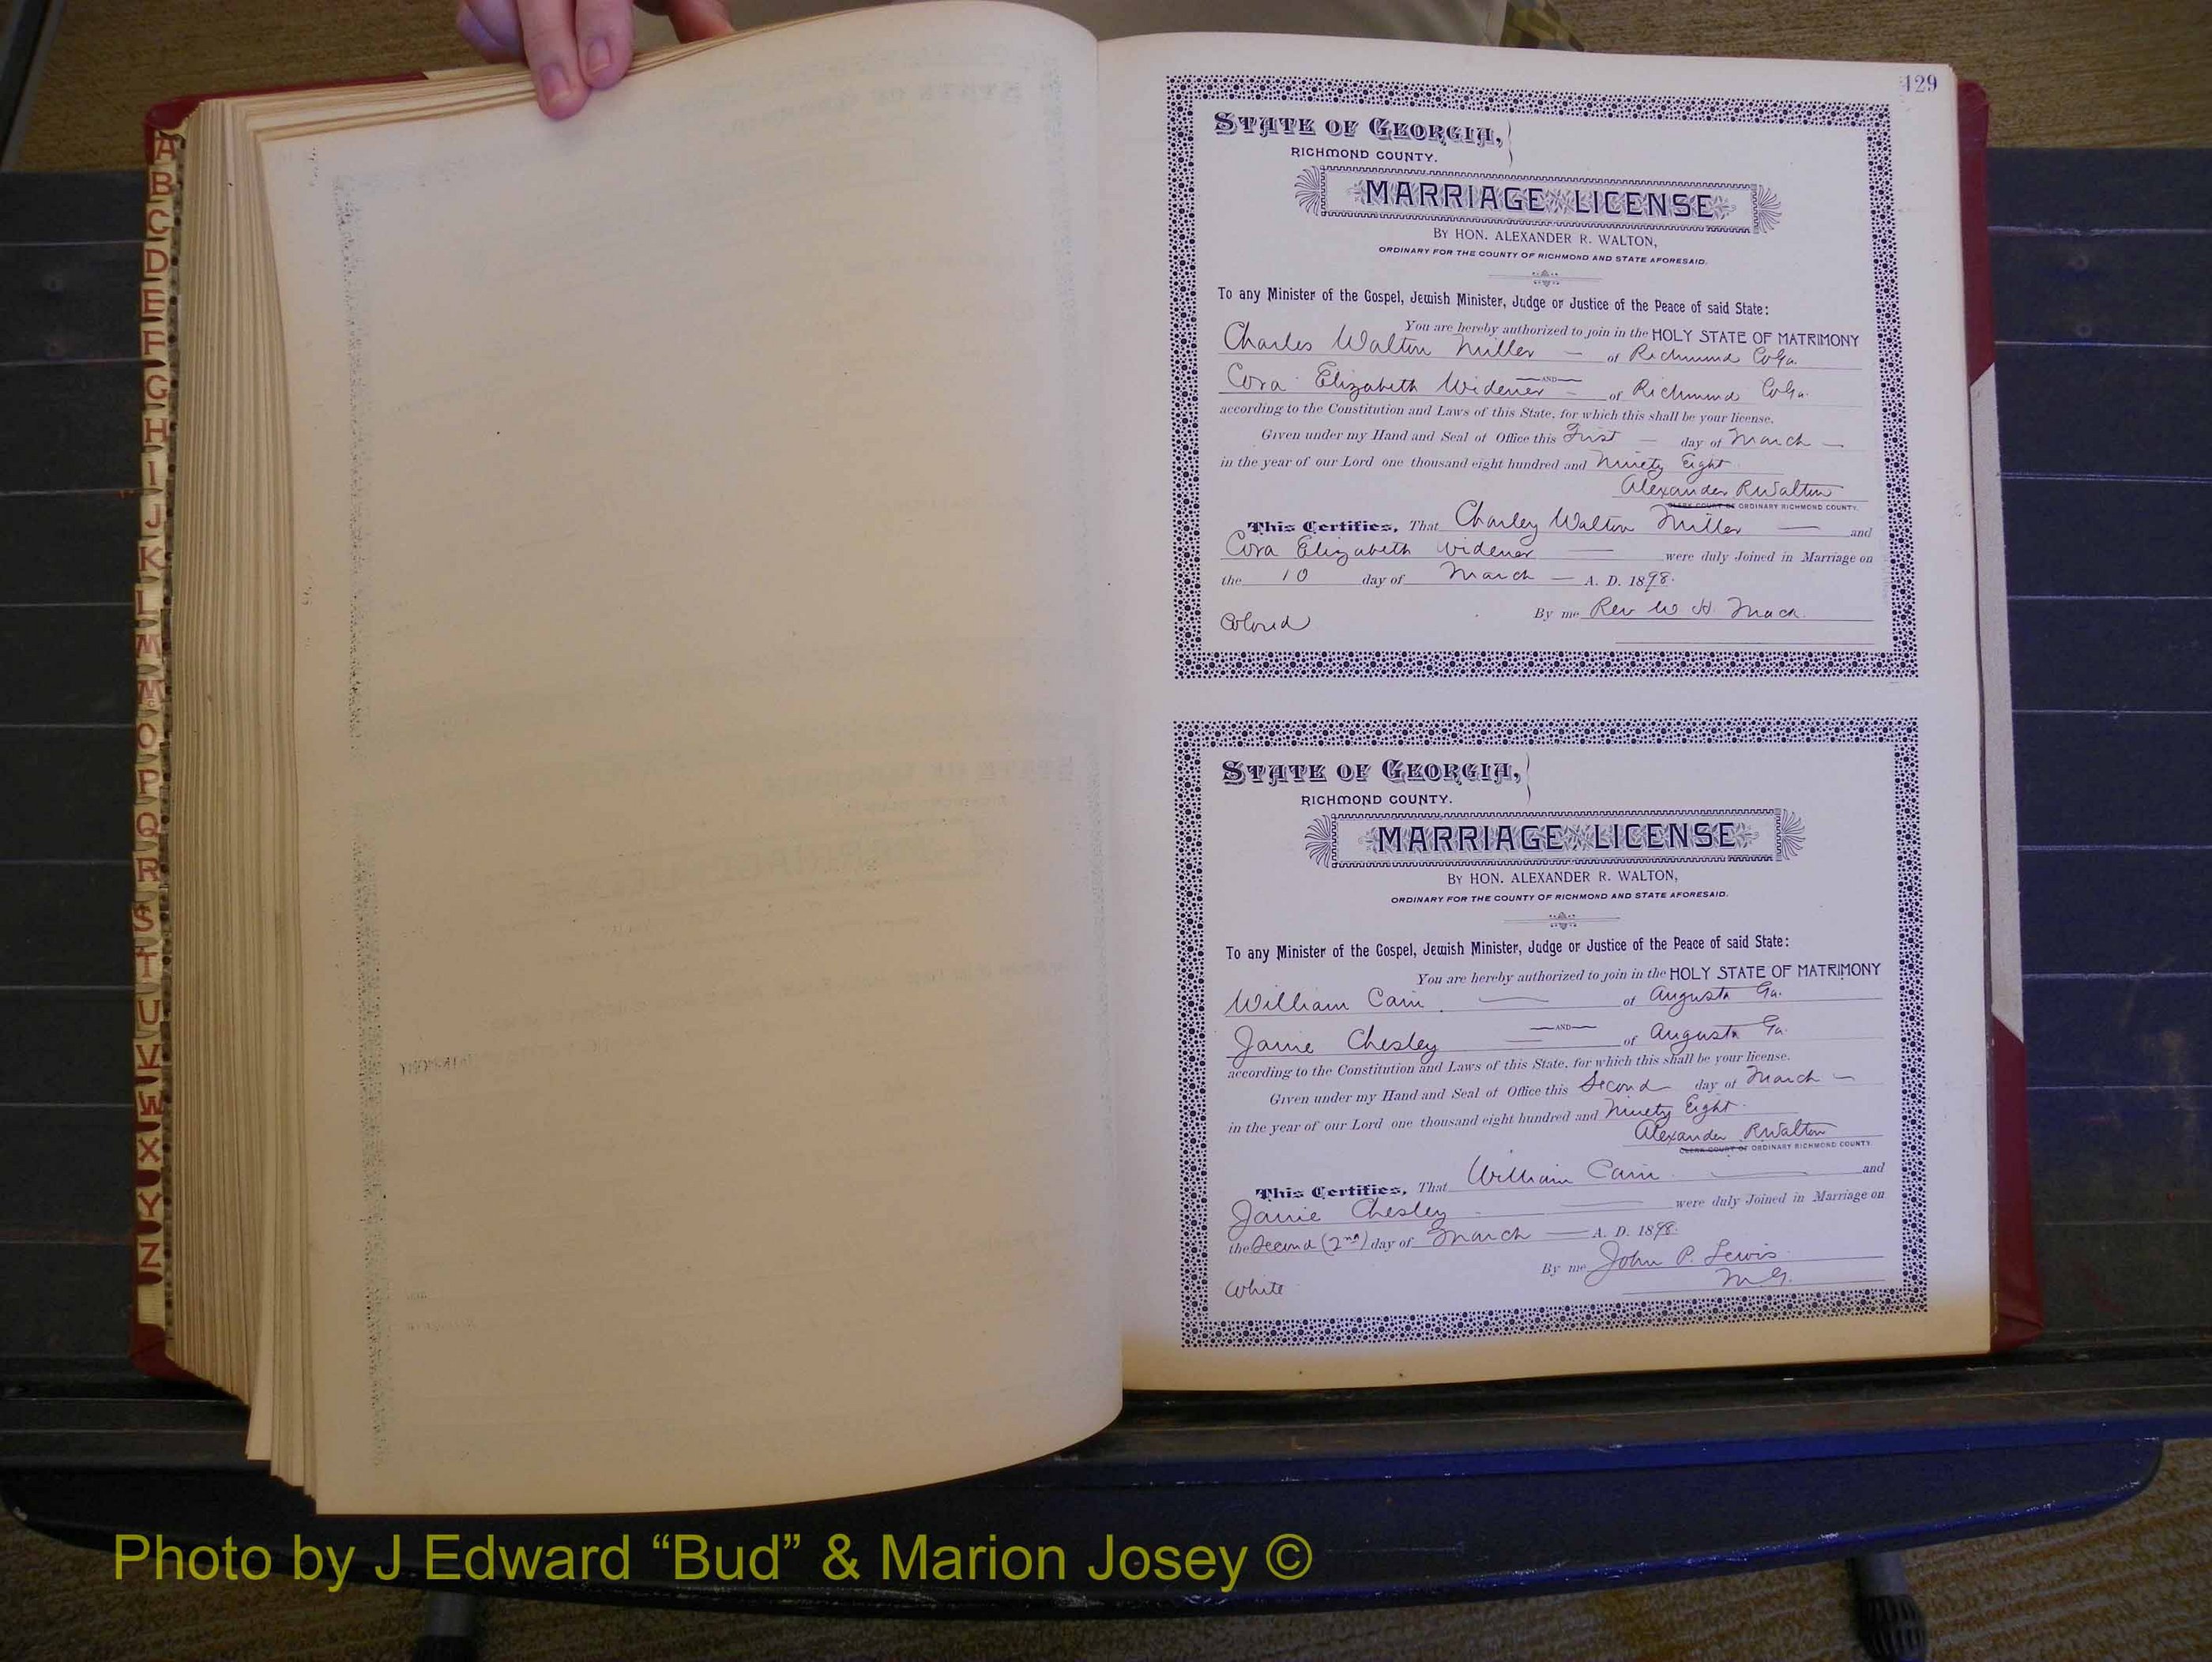 A
B
C
D
E
F
G
H
I
J
K
L
M
Mc
O
P
Q
R
S
T
U
V
W
X
Y
Z
129
STATE OF GEORGIA,
RICHMOND COUNTY.
MARRIAGE LICENSE
BY HON. ALEXANDER R. WALTON,
ORDINARY FOR THE COUNTY OF RICHMOND AND STATE AFORESAID.
To any Minister of the Gospel, Jewish Minister, Judge or Justice of the Peace of said State:
You are hereby authorized to join in the HOLY STATE OF MATRIMONY
Charles Walton Miller — of Richmond Co Ga.
AND
Cora Elizabeth Widener - of Richmond Co Ga.
according to the Constitution and Laws of this State, for which this shall be your license.
Given under my Hand and Seal of Office this First — day of March —
in the year of our Lord one thousand eight hundred and Ninety Eight.
Alexander R Walton
CLERK COURT OF ORDINARY RICHMOND COUNTY.
This Certifies, That Charley Walton Miller — and
Cora Elizabeth Widener — were duly Joined in Marriage on
the 10 day of March — A. D. 1898.
By me Rev W. H. Mack.
Colored
STATE OF GEORGIA,
RICHMOND COUNTY.
MARRIAGE LICENSE
BY HON. ALEXANDER R. WALTON,
ORDINARY FOR THE COUNTY OF RICHMOND AND STATE AFORESAID.
To any Minister of the Gospel, Jewish Minister, Judge or Justice of the Peace of said State:
You are hereby authorized to join in the HOLY STATE OF MATRIMONY
William Cain — of Augusta Ga.
AND
Janie Chesley — of Augusta Ga.
according to the Constitution and Laws of this State, for which this shall be your license.
Given under my Hand and Seal of Office this Second day of March —
in the year of our Lord one thousand eight hundred and Ninety Eight.
Alexander R Walton
CLERK COURT OF ORDINARY RICHMOND COUNTY
This Certifies, That William Cain — and
Janie Chesley — were duly Joined in Marriage on
the Second (2nd) day of March — A. D. 1898.
By me John P. Lewis
M. G.
White
Photo by J Edward “Bud” & Marion Josey ©